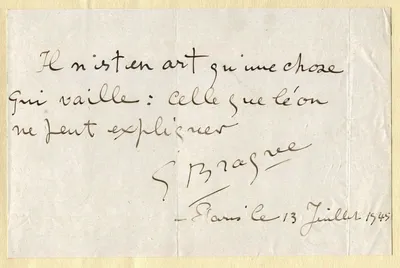 Il n'est en art qu'une chose
qui vaille : celle que l'on
ne peut expliquer
G Braque
Paris le 13 Juillet 1945